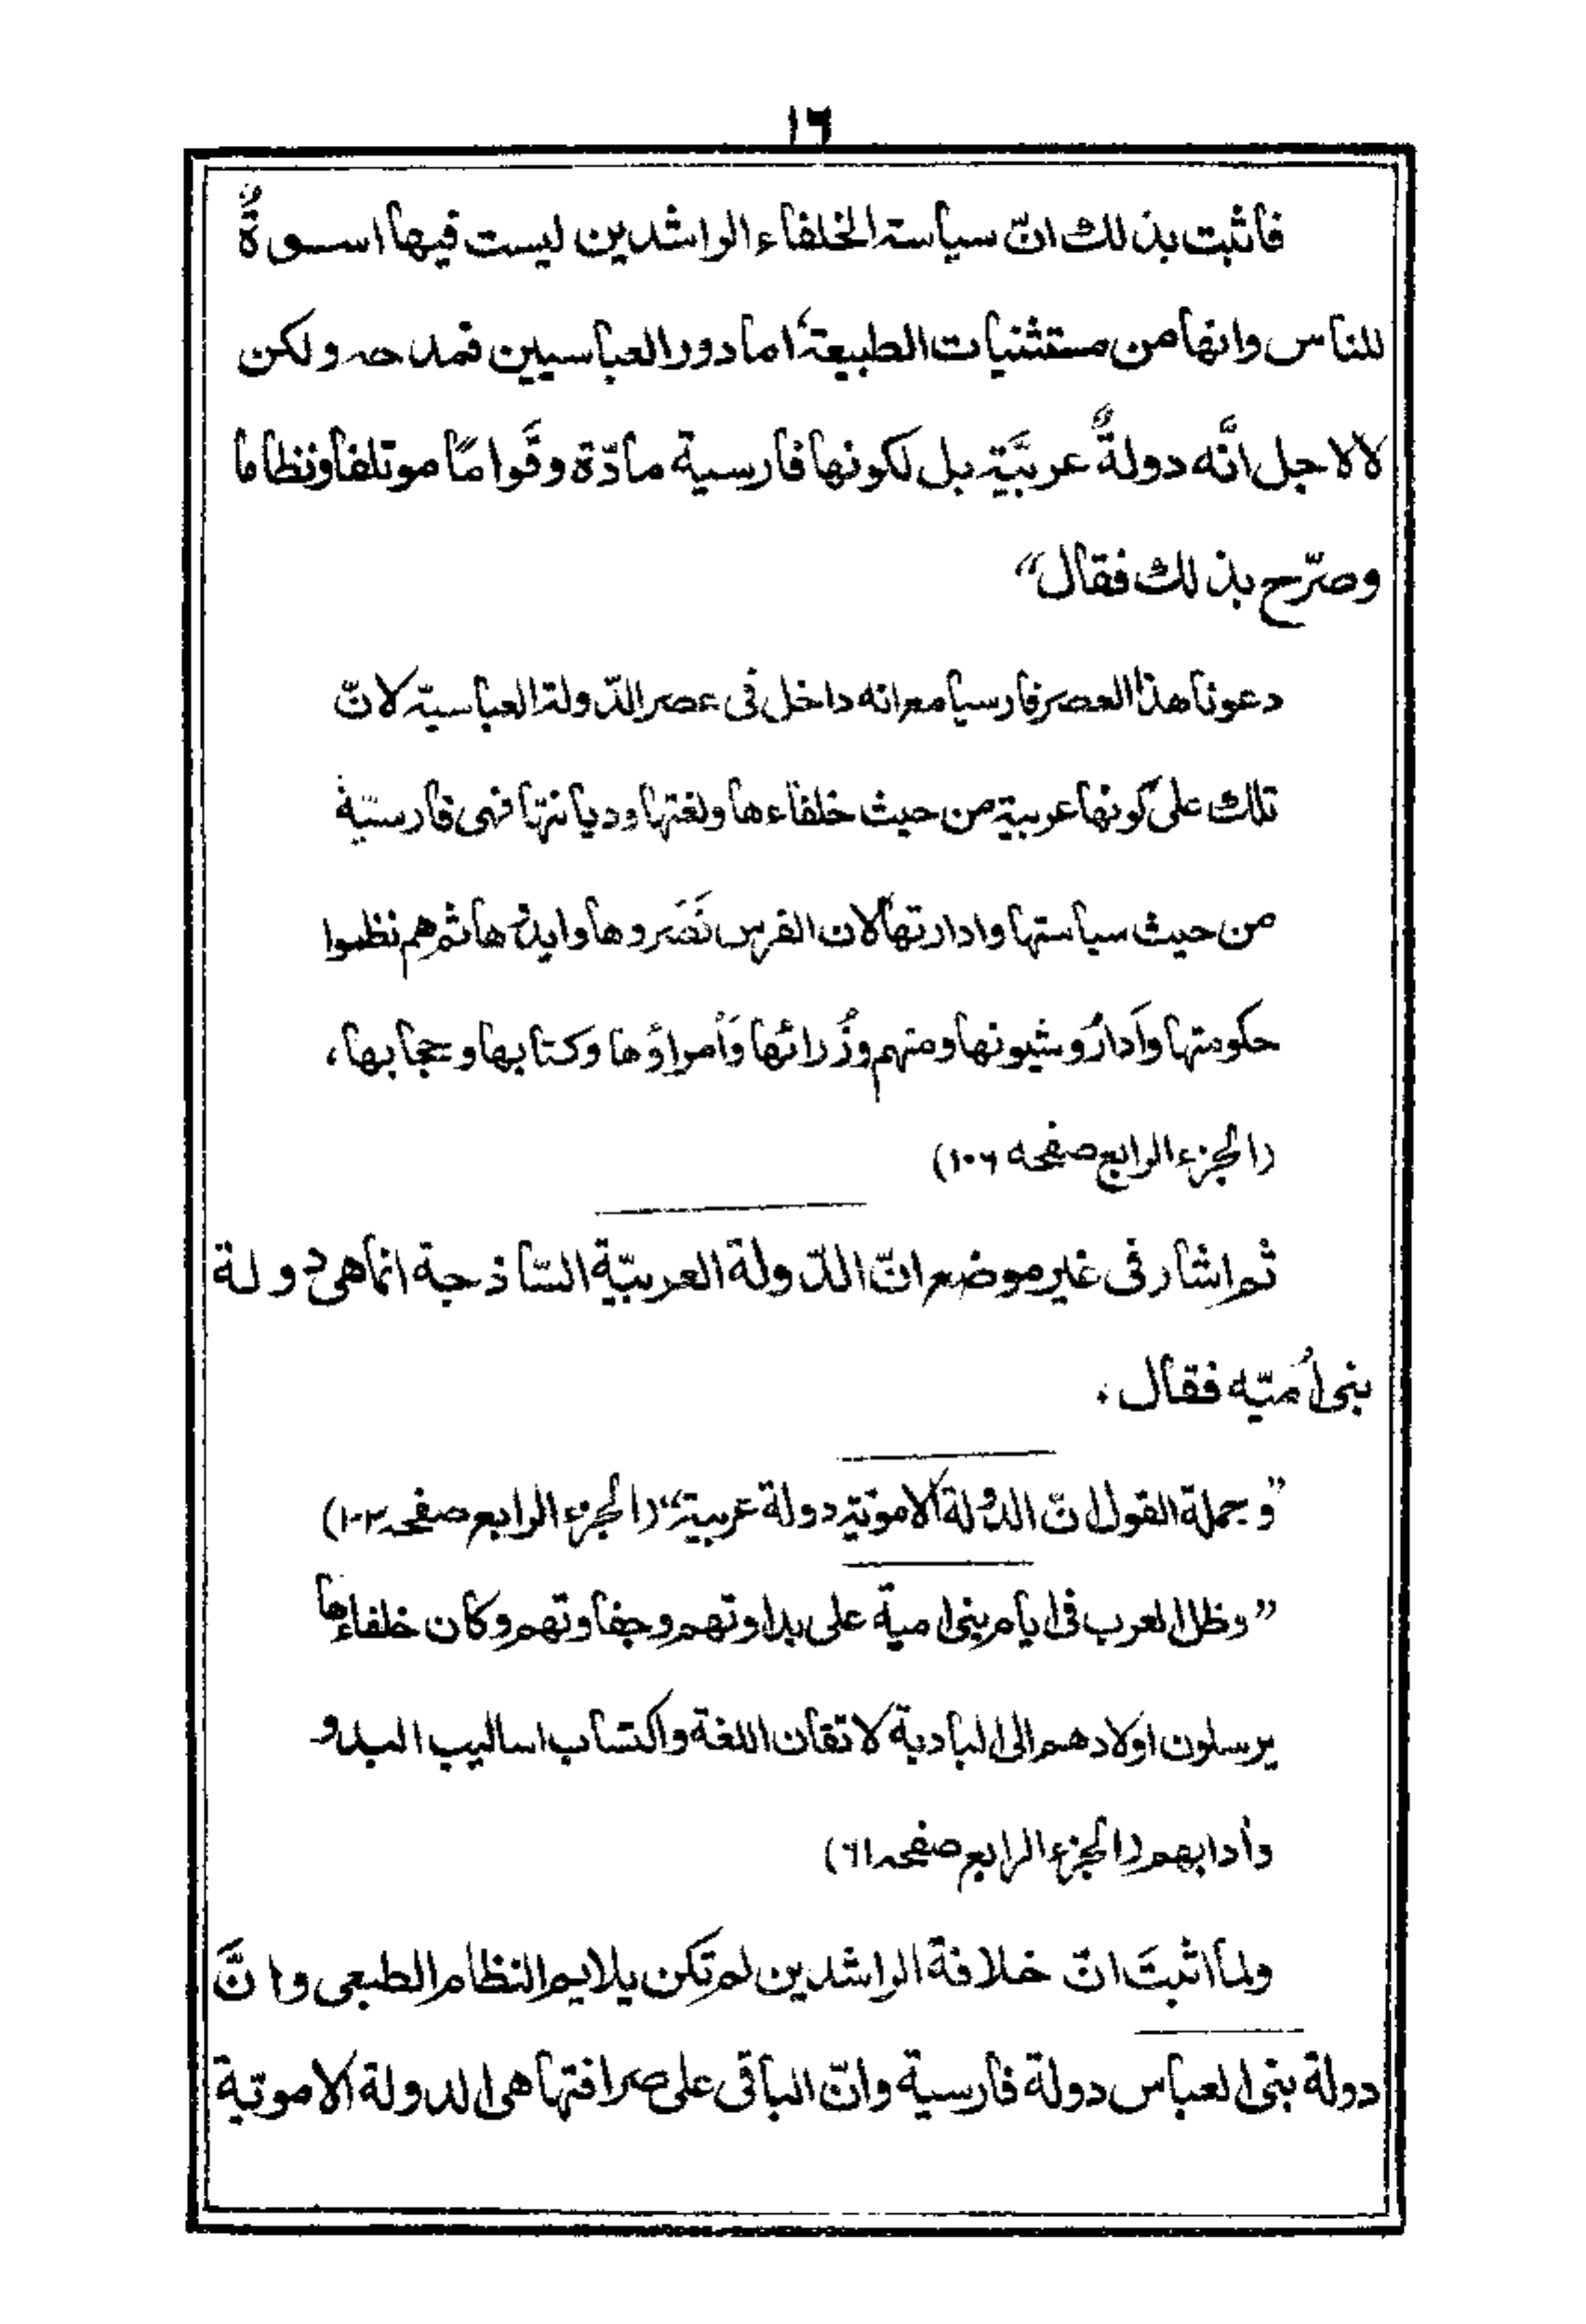 ١٦
فاثبت بذلك انّ سياسة الخلفاء الراشدين ليست فيها اسوةٌ
للناس وانها من مستثنيات الطبيعة، اما دور العباسيين فمدحه ولكن
لا لاجل انَّه دولةٌ عربيَّة بل لكونها فارسية مادّة وقَوامًا موتلفا ونظاما
وصرّح بذلك فقال“
دعونا هذا العصر فارسيا مع انه داخل فى عصر الدّولة العباسيّة لانّ
تلك على كونها عربية من حيث خلفاءها ولغتها وديانتها فهى فارسيّة
من حيث سياستها وادارتها لان الفرس نَصَروها وايدوها ثم هم نظموا
حكومتها وادارُوشيونها ومنهم وزُرائها وأمراؤها وكتابها وحجابها،
(الجزء الرابع صفحه ١٠٦)
ثم اشار فى غير موضع انّ الدّولة العربيّة السّاذجة انما هى دولة
بنى أميّه فقال.
”وجملة القول انّ الدولة الامويّة دولة عربية“ (الجزء الرابع صفحه ١٠٣)
”وظل العرب فى ايام بنى امية على بداوتهم وجفاوتهم وكان خلفاءها
يرسلون اولادهم الى البادية لاتقان اللغة واكتساب اساليب البدو
وأدابهم (الجزء الرابع صفحه ٦١)
ولما اثبتَ انّ خلافة الراشدين لم تكن يلايم النظام الطبعى وانَّ
دولة بنى العباس دولة فارسية وانّ الباقى على صرافتها هى الدولة الامويّة